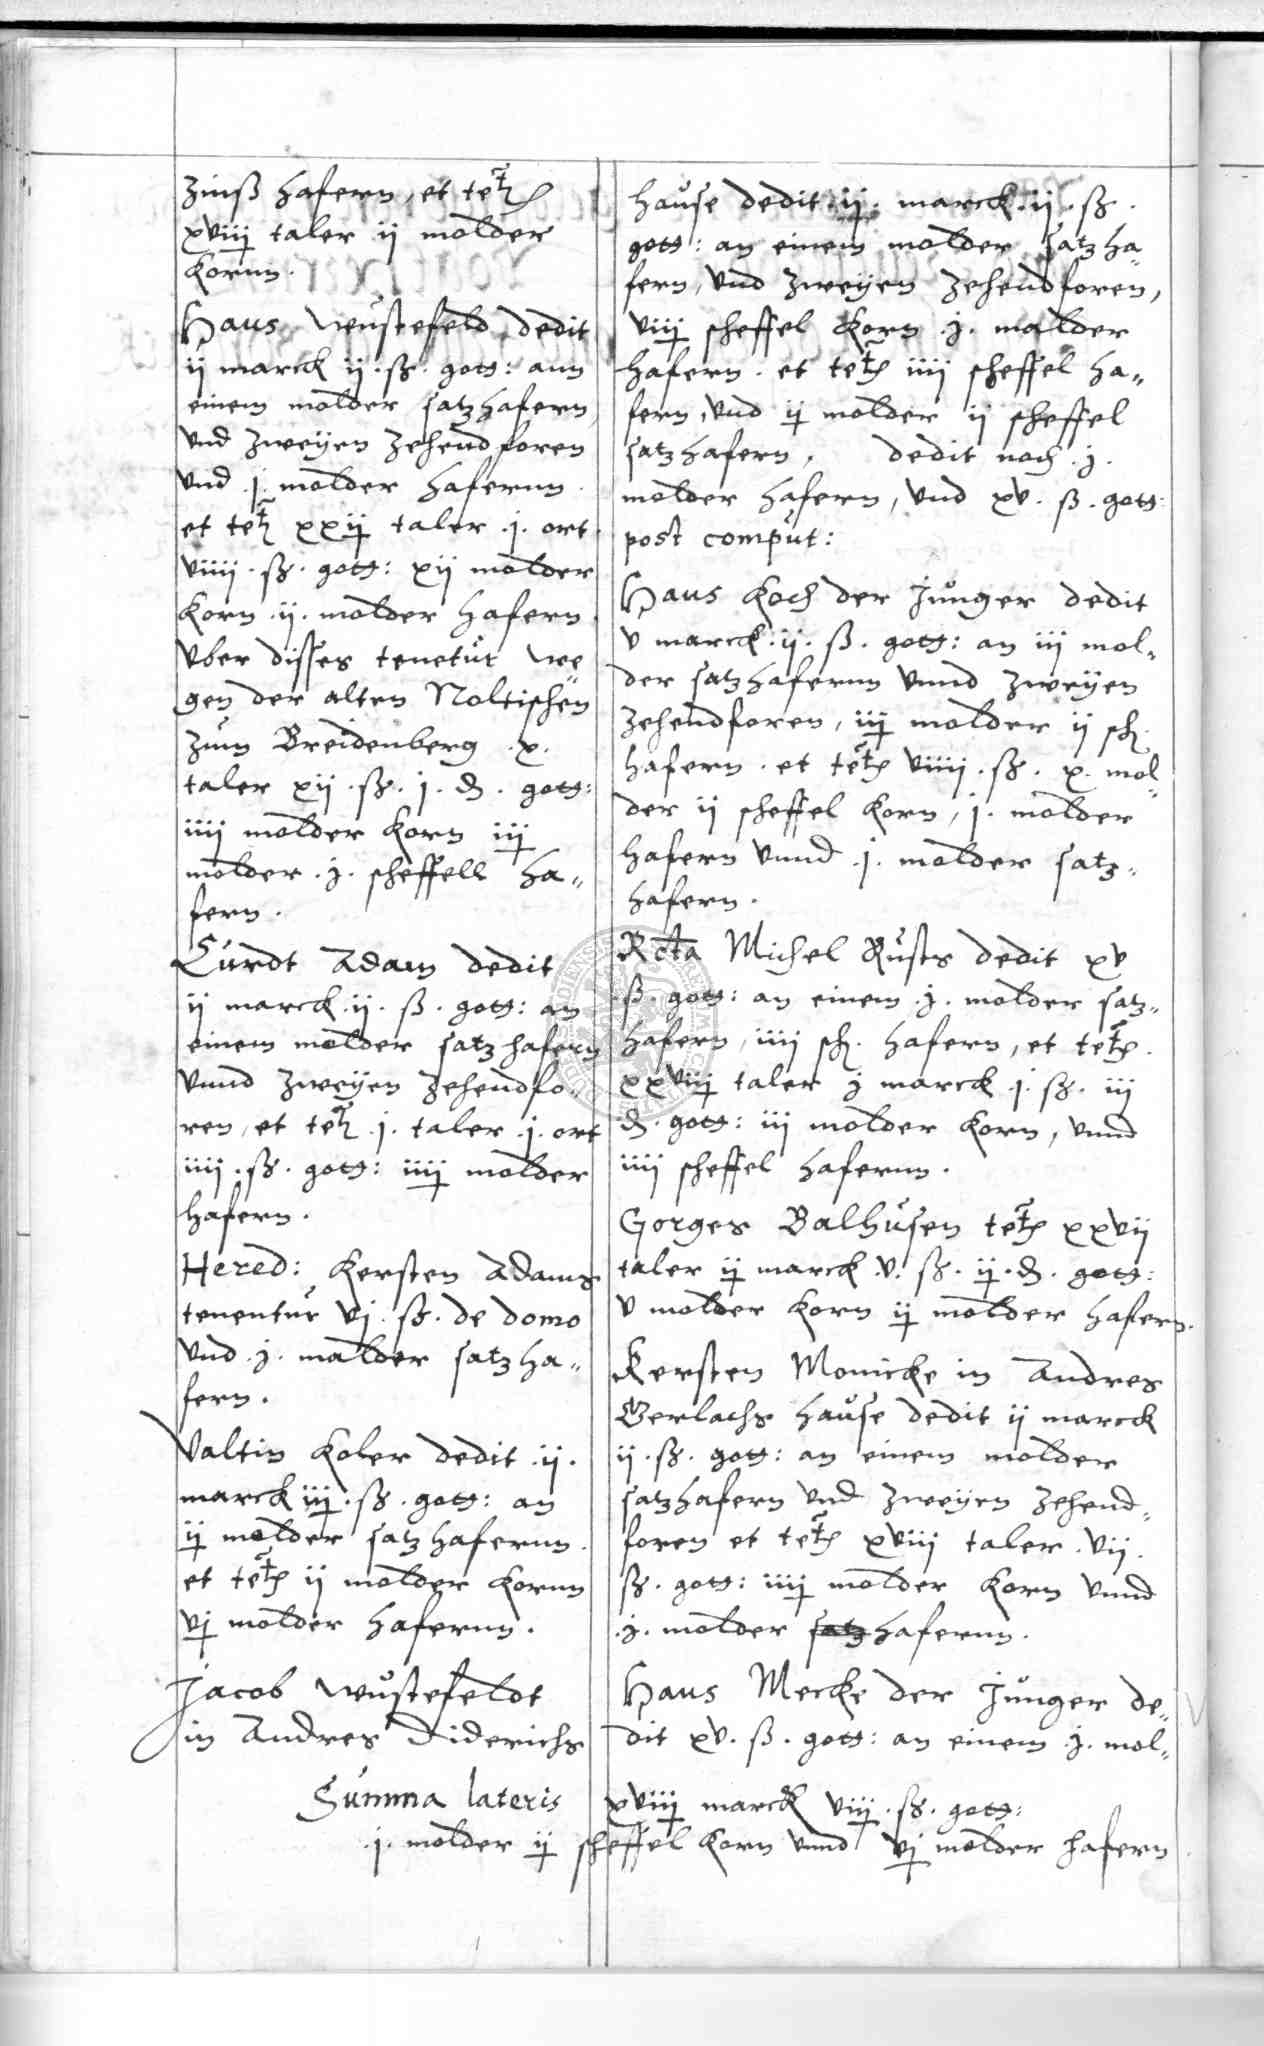 zinß hafern, et te͠tʒ
xviiij taler ij molder
Kornn.
Hans Wüstefeld dedit
ij marck ij . ß . gott: ann
einem molder satzhafern
vnd zweyen zehendforen
vnd .j. molder hafernn.
et te͠tʒ xxij taler .j. ort
viiij . ß . gott: xij molder
Korn .ij. molder hafern
vber disses tenetur we
gen der alten Noltischen
zum Breidenberg .x.
taler xij . ß . j . ₰ . gott:
iiij molder Korn iij
molder .j. scheffell ha„
fern.
Curdt Adam dedit
ij marck .ij. ß . gott: an
einem molder satzhafern
vnnd zweyen zehendfo„
ren, et te͠tʒ .j. taler .j. ort
iiij . ß . gott: iiij molder
hafern.
Hered: Kersten Adams
tenentur vj . ß . de domo
vnd .j. malder satzha„
fern.
Valtin Koler dedit .ij.
marck iij . ß . gott: an
ij molder satzhafernn.
et te͠tʒ ij molder Kornn
vj molder hafernn.
Jacob Wüstefeldt
in Andres Diderichs
hause dedit .ij. marck .ij . ß .
gott: an einem molder satzha„
fern, vnd zweyen zehendforen,
viij scheffel Korn .j. malder
hafern . et te͠tʒ iiij scheffel ha„
fern, vnd ij molder ij scheffel
satzhafern, dedit noch .j.
molder hafern, vnd xv . ß . gott:
post comput:
Hans Koch der Junger dedit
v marck .ij . ß . gott: an iij mol„
der satzhafernn vnnd zweyen
zehendforen, iij molder ij sch.
hafern . et te͠tʒ viiij . ß . x . mol„
der ij scheffel Korn, j. molder
hafern vnnd .j. molder satz„
hafern.
Rcta Michel Rusts dedit xv
. ß . gott: an einem .j. molder satz„
hafern, iiij sch. hafern, et te͠tʒ.
xxviij taler j marck j . ß . iij
₰ . gott: iij molder Korn, vnnd
iiij scheffel hafernn.
Gorges Balhusen te͠tʒ xxvij
taler ij marck .v. ß . ij . ₰ . gott:
v molder Korn ij molder hafern.
Kersten Monicke in Andres
Gerlachs hause dedit ij marck
ij . ß . gott: an einem molder
satzhafern vnd zweyen zehend„
foren et te͠tʒ xviij taler .vij.
ß . gott: iiij molder Korn vnnd
.j. molder satzhafernn.
Hans Mecke der Junger de„
dit xv . ß . gott: an einem .j. mol„
Summa lateris xviiij marck viij . ß . gott:
.j. molder ij scheffel Korn vnnd vj molder hafern